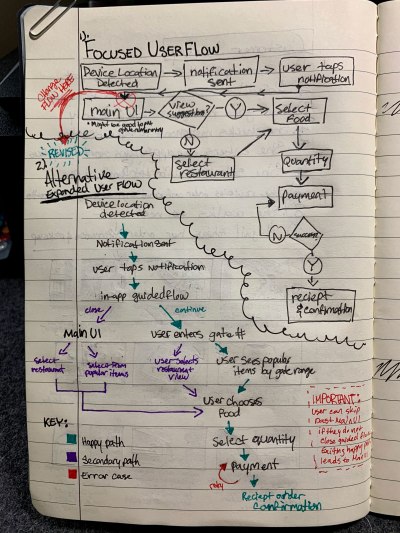 1)
FOCUSED USER FLOW
Device Location
Detected
notification
sent
user taps
notification
CHANGE
FLOW HERE
main UI
view
suggestion?
Y
Select
Food
N
Select
restaurant
REVISED
2)
Alternative
Expanded User Flow
Quantity
Payment
N
success
Y
reciept
& confirmation
Device location
detected
Notification sent
user taps notification
in-app guided flow
close
continue
Main UI
user enters gate #
Select
restaurant
Select from
popular items
user selects
restaurant
view
user sees popular
items by gate range
user chooses
food
Select quantity
Payment
retry
Reciept order
confirmation
KEY:
Happy path
Secondary path
Error case
IMPORTANT:
user can skip
past Main UI
if they do not
close guided
Exiting happy
leads to Main UI